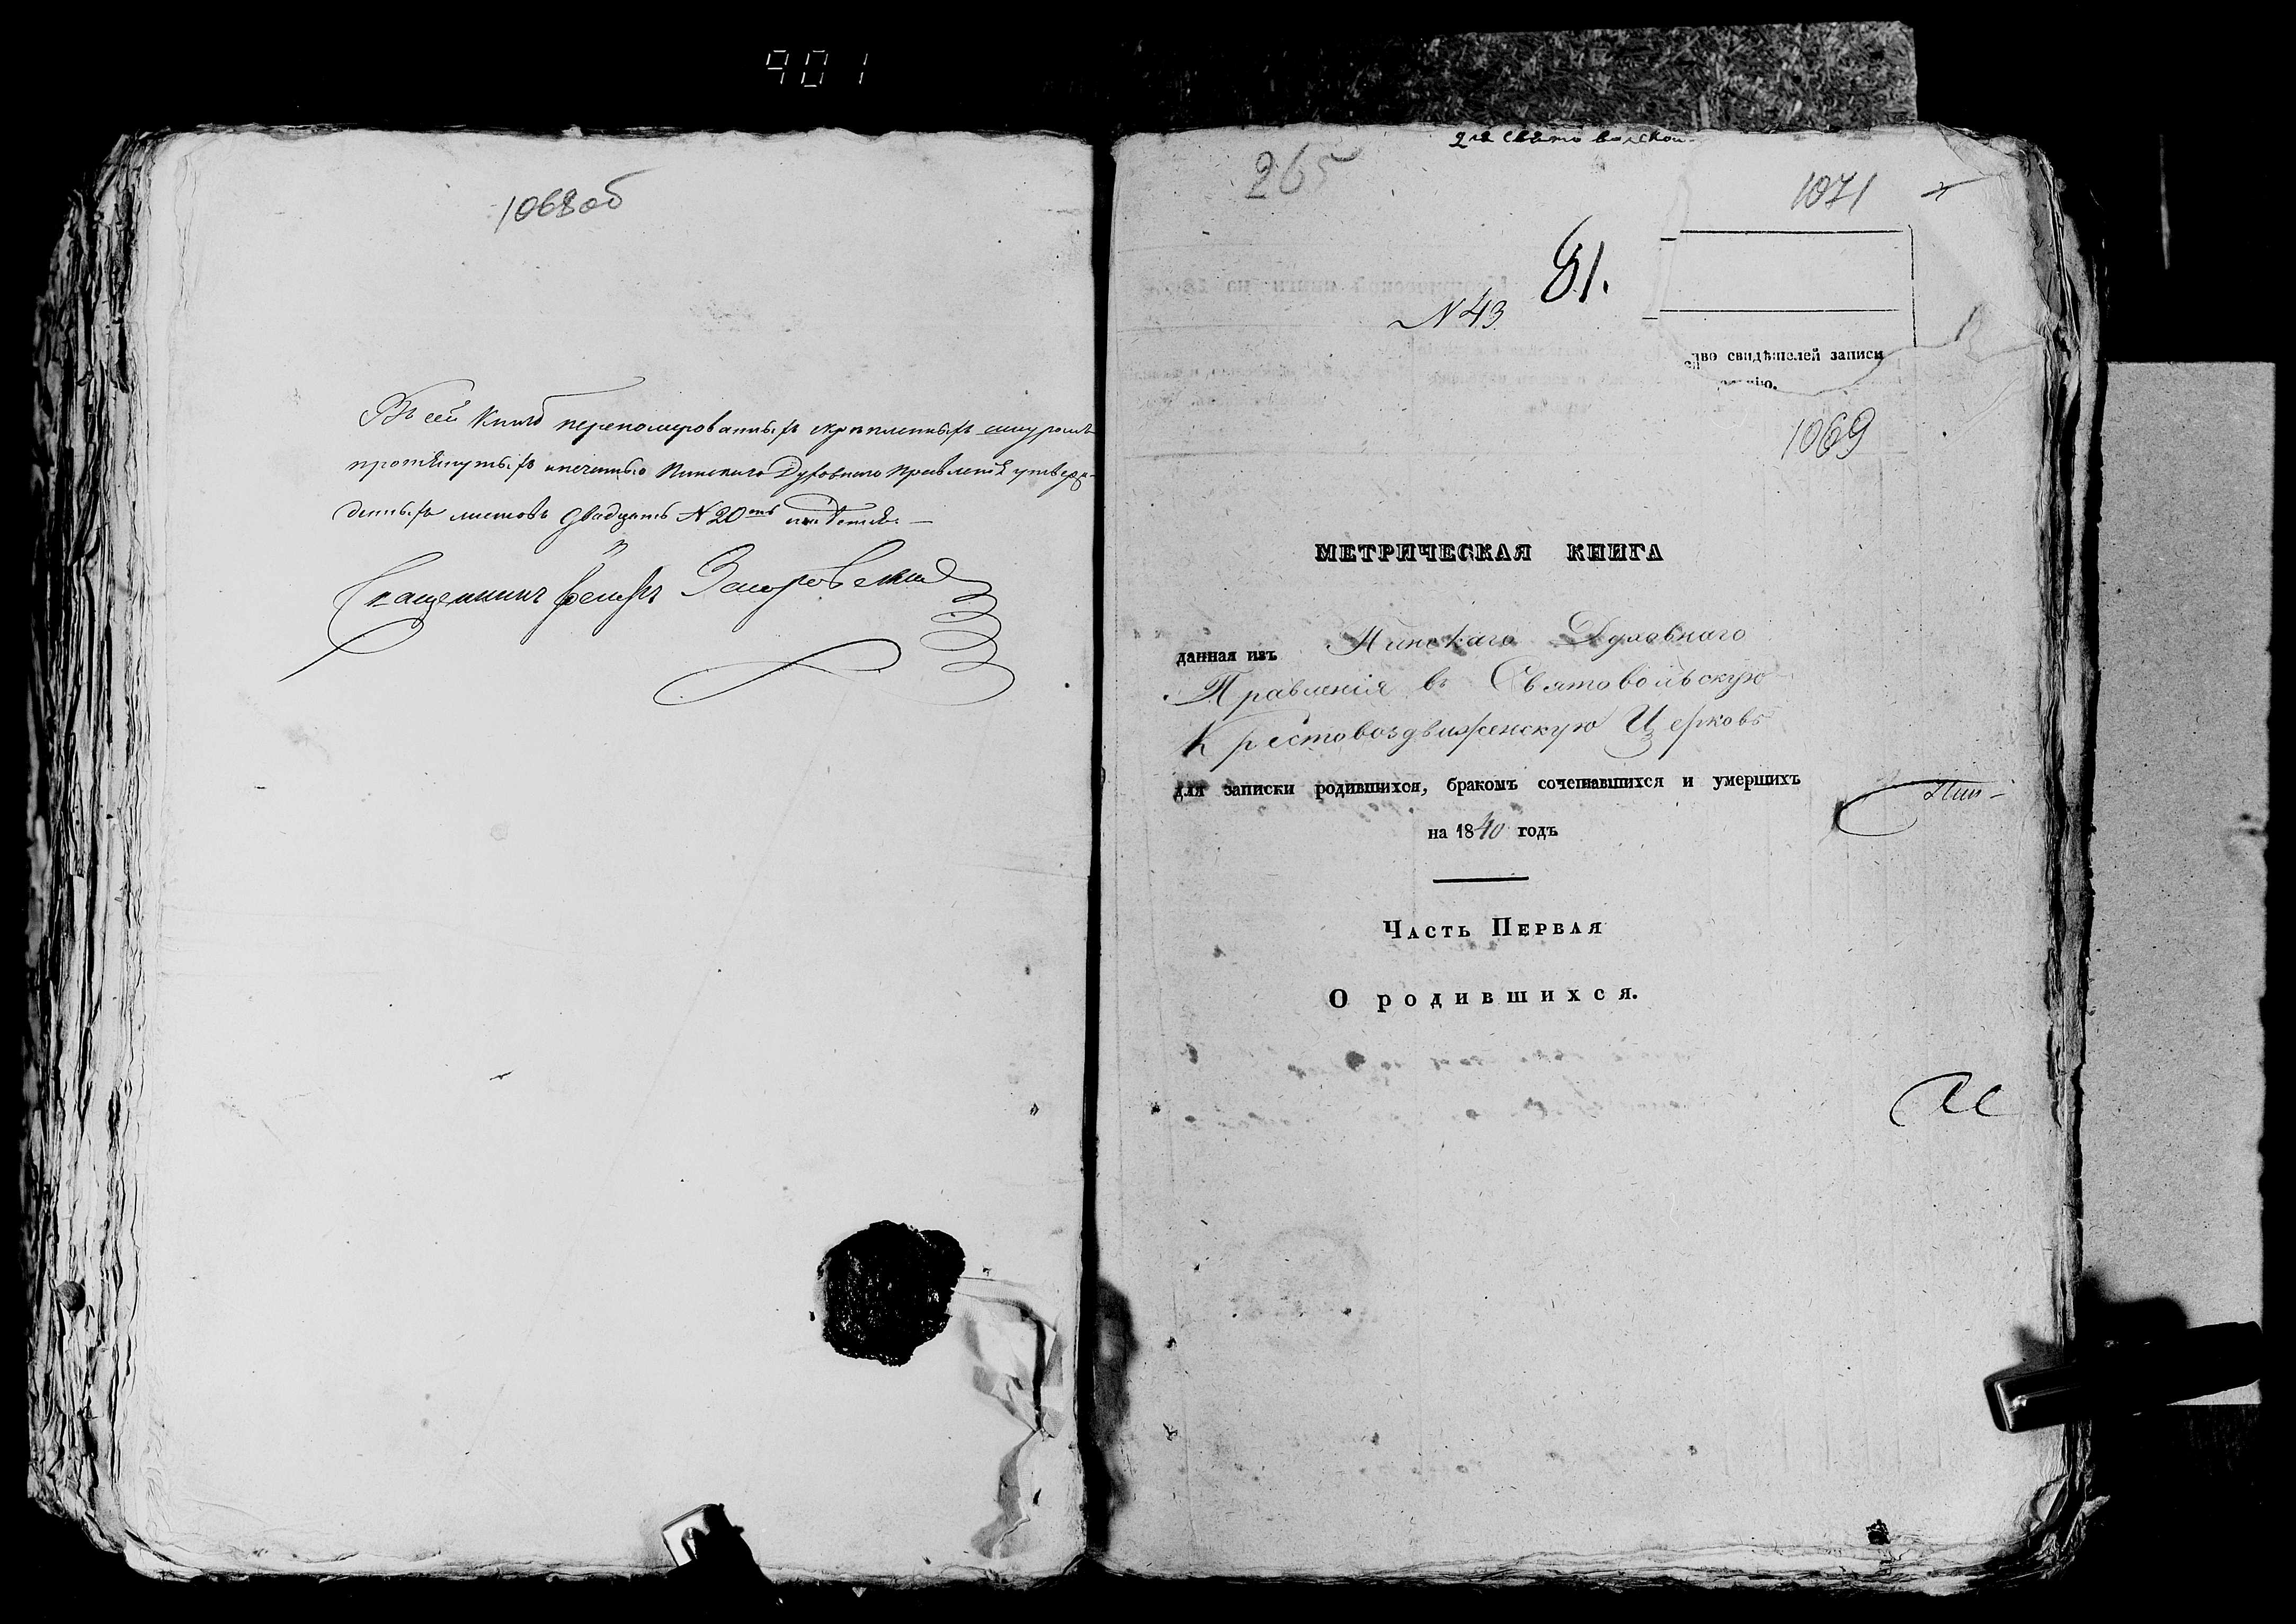 901
1068об
Въ сей Книгѣ перенумерованныхъ скрѣпленныхъ шнуромъ
протянутыхъ и печатью Пинскаго Духовнаго Правленія утверж-
денныхъ листовъ двадцать N 20тъ
Священникъ
для Святовольской
265
1071
81.
N 43
тво свидѣтелей записи
1069
МЕТРИЧЕСКАЯ КНИГА
данная изъ Пинскаго Духовнаго
Правленія въ Святовольскую
Крестовоздвиженскую Церковь
для записки родившихся, бракомъ сочетавшихся и умершихъ
Пин-
на 1840 годъ
Часть Первая
О родившихся.